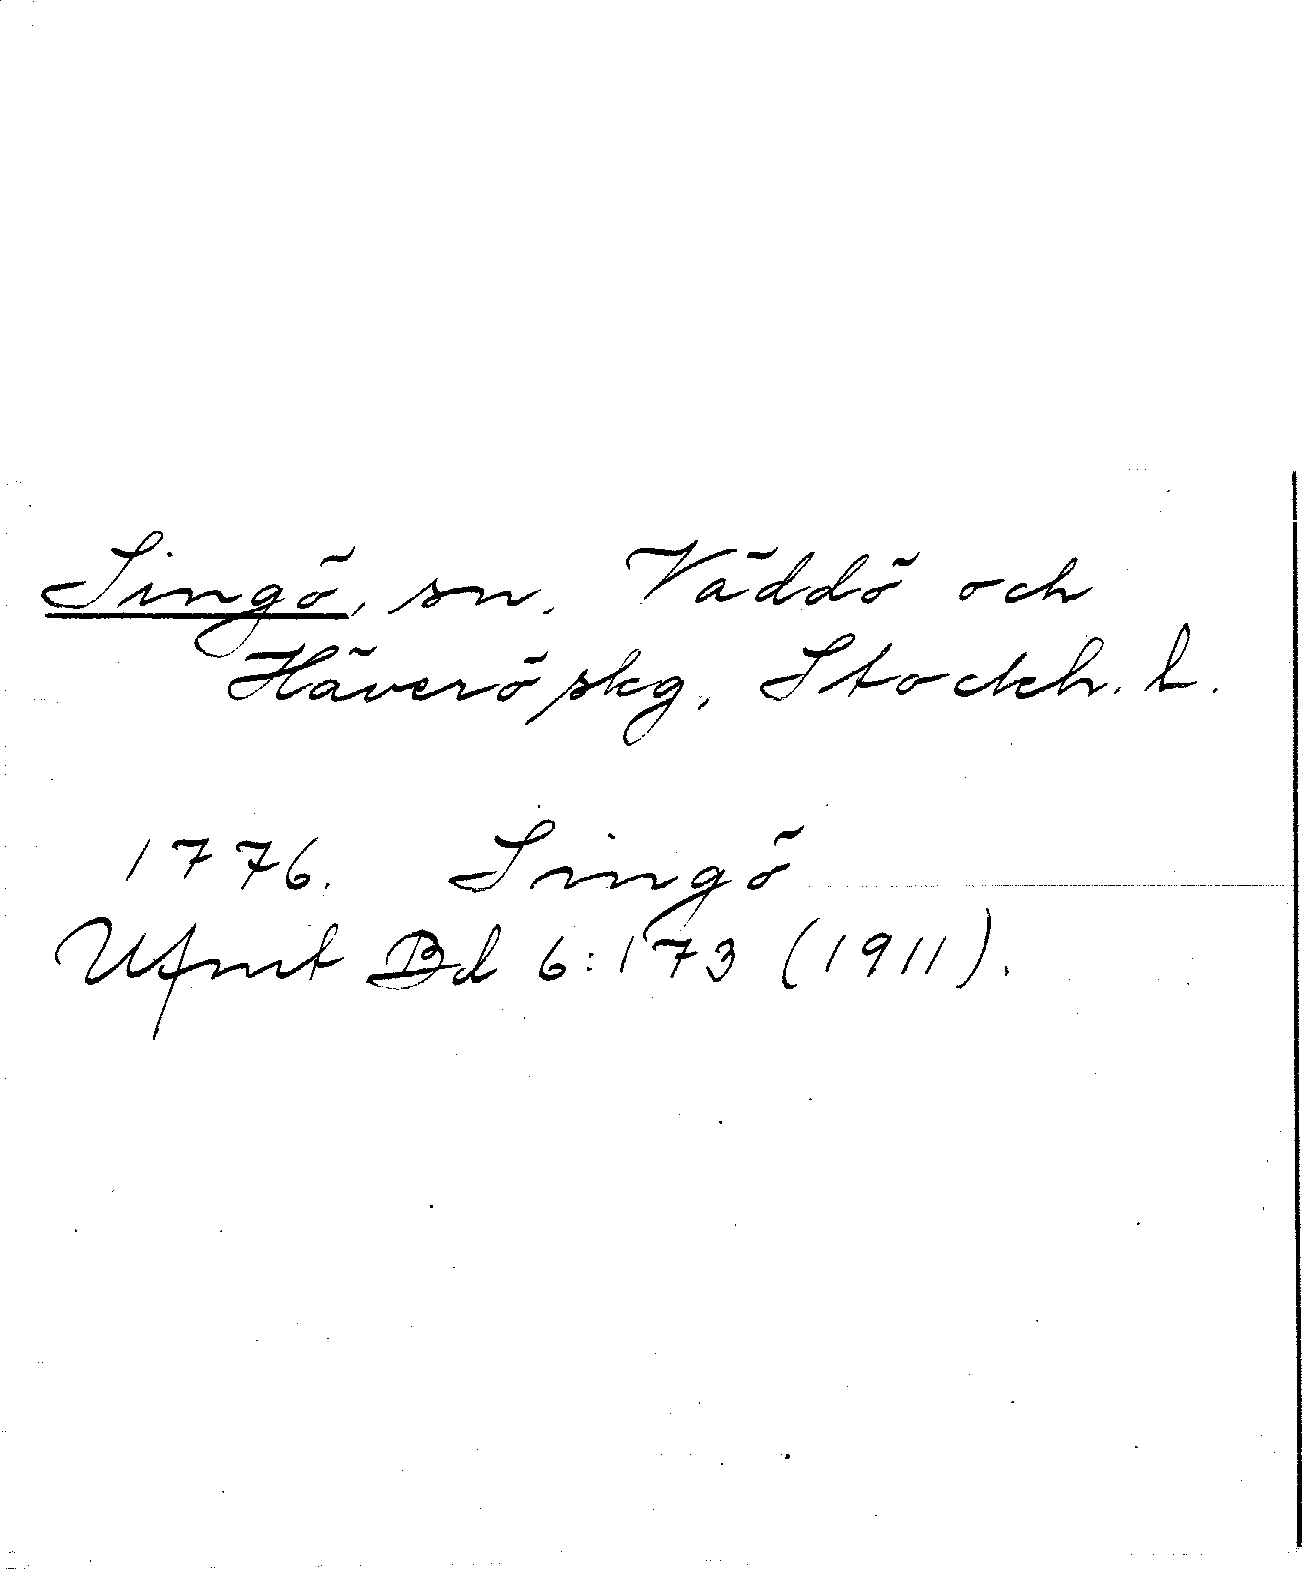 Singö, sn. Väddö och
Häverö skg, Stockh. l.
1776. Singö
Ufmt Bd 6:173 (1911).